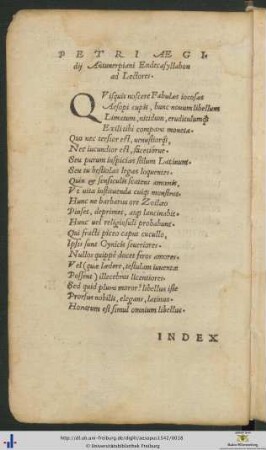 PETRI AEGI-
dij Antuuerpiani Endecasyllabon
ad Lectores.
QVisquis noscere Fabulas iocosas
Aesopi cupit, hunc nouum libellum
Limatum, nitidum, eruditulumq́;
Exili tibi comparæ moneta.
Quo nec tersior est, uenustiorq́;,
Nec iucundior est, facetiorue.
Seu purum inspicias solum Latinum:
Seu tu bestiolas legas loquentes.
Quin &amp; sensiculis scatens amœnis,
Vt uita instituenda cuiq; monstrat.
Hunc ne barbarus ore Zoilato
Pinset, deprimat, aut lancinabit.
Hunc uel religiosuli probabunt.
Qui fracti piceo caput cucullo,
Ipsis sunt Cynicis seueriores.
Nullos quippe docet feros amores:
Vel (quæ lædere, testulam iuuentæ
Possent) illecebras licentiores.
Sed quid plura moror? libellus iste
Prorsus nobilis, elegans, latinus.
Honorum est simul omnium libellus.
INDEX
http://dl.ub.uni-freiburg.de/diglit/aesopus1542/0018
© Universitätsbibliothek Freiburg